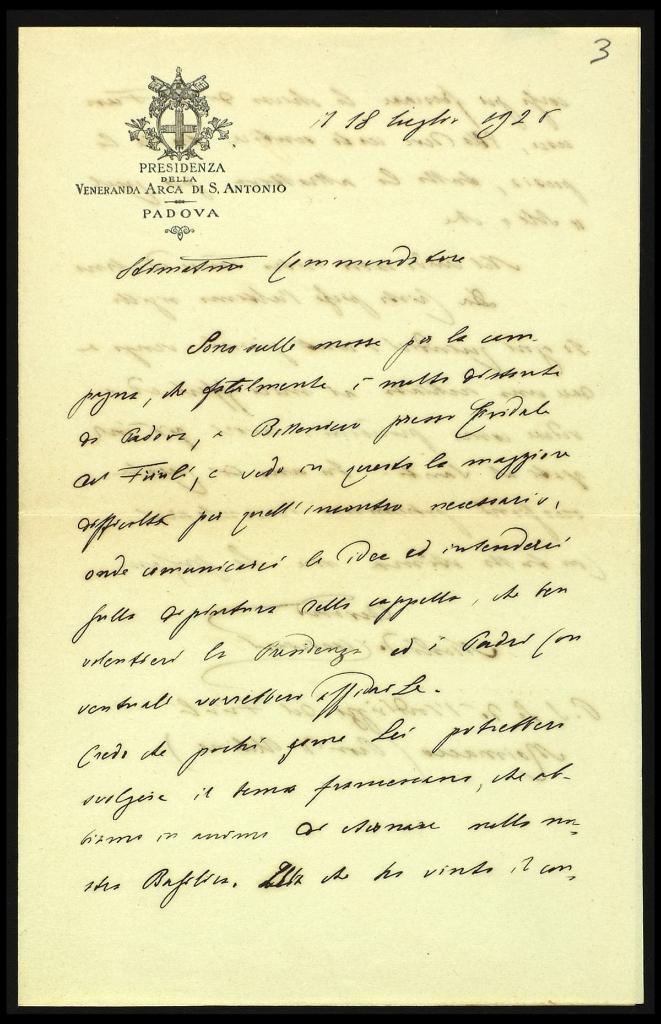 3
PRESIDENZA
DELLA
VENERANDA ARCA DI S. ANTONIO
PADOVA
18 luglio 192
Commendatore
Sono sulle mosse per la cam-
pagna, che fatalmente è molto distante
da Padova, a Bottenicco presso Cividale
del Friuli, e vedo in questo la maggiore
difficoltà per quell'incontro necessario,
onde comunicarci le idee ed intenderci
sulla dipintura della cappella, che ben
volentieri la Presidenza ed i Padri Con
ventuali vorrebbero affidarLe.
Credo che pochi come Lei potrebbero
svolgere il tema francescano, che ab-
biamo in animo di nella no-
stra Basilica. che ha vinto il con-